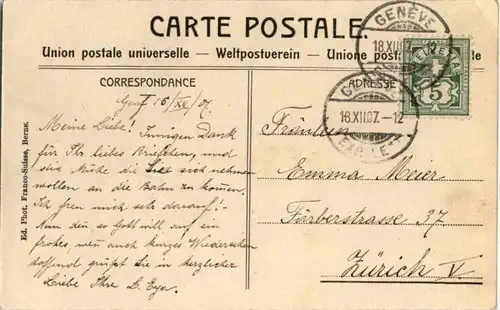 CARTE POSTALE.
Union postale universelle – Weltpostverein – Unione postale
CORRESPONDANCE
ADRESSE
Genf 16/XII 07.
Meine Liebe! Innigen Dank
für Ihr liebes Briefchen, und
die Mühe die Sie sich nehmen
wollen an die Bahn zu kommen.
Ich freu mich sehr darauf!
Nun denn so Gott will auf ein
frohes wenn auch kurzes Wiedersehen
hoffend grüßt Sie in herzlicher
Liebe Ihre
Fräulein
Emma Meier
Färberstrasse 37.
Zürich V.
Ed. Phot. Franco-Suisse, Berne.
GENÈVE
18.XII
HELVETIA
5
16.XII.07.–12
EXP. LETT.